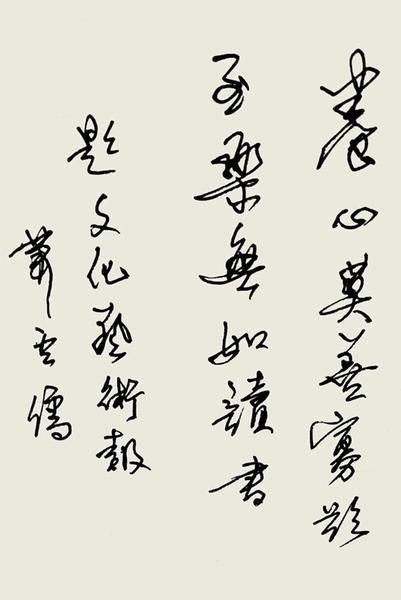 養心莫善寡欲
至樂無如讀書
題文化藝術報
蕭雲儒